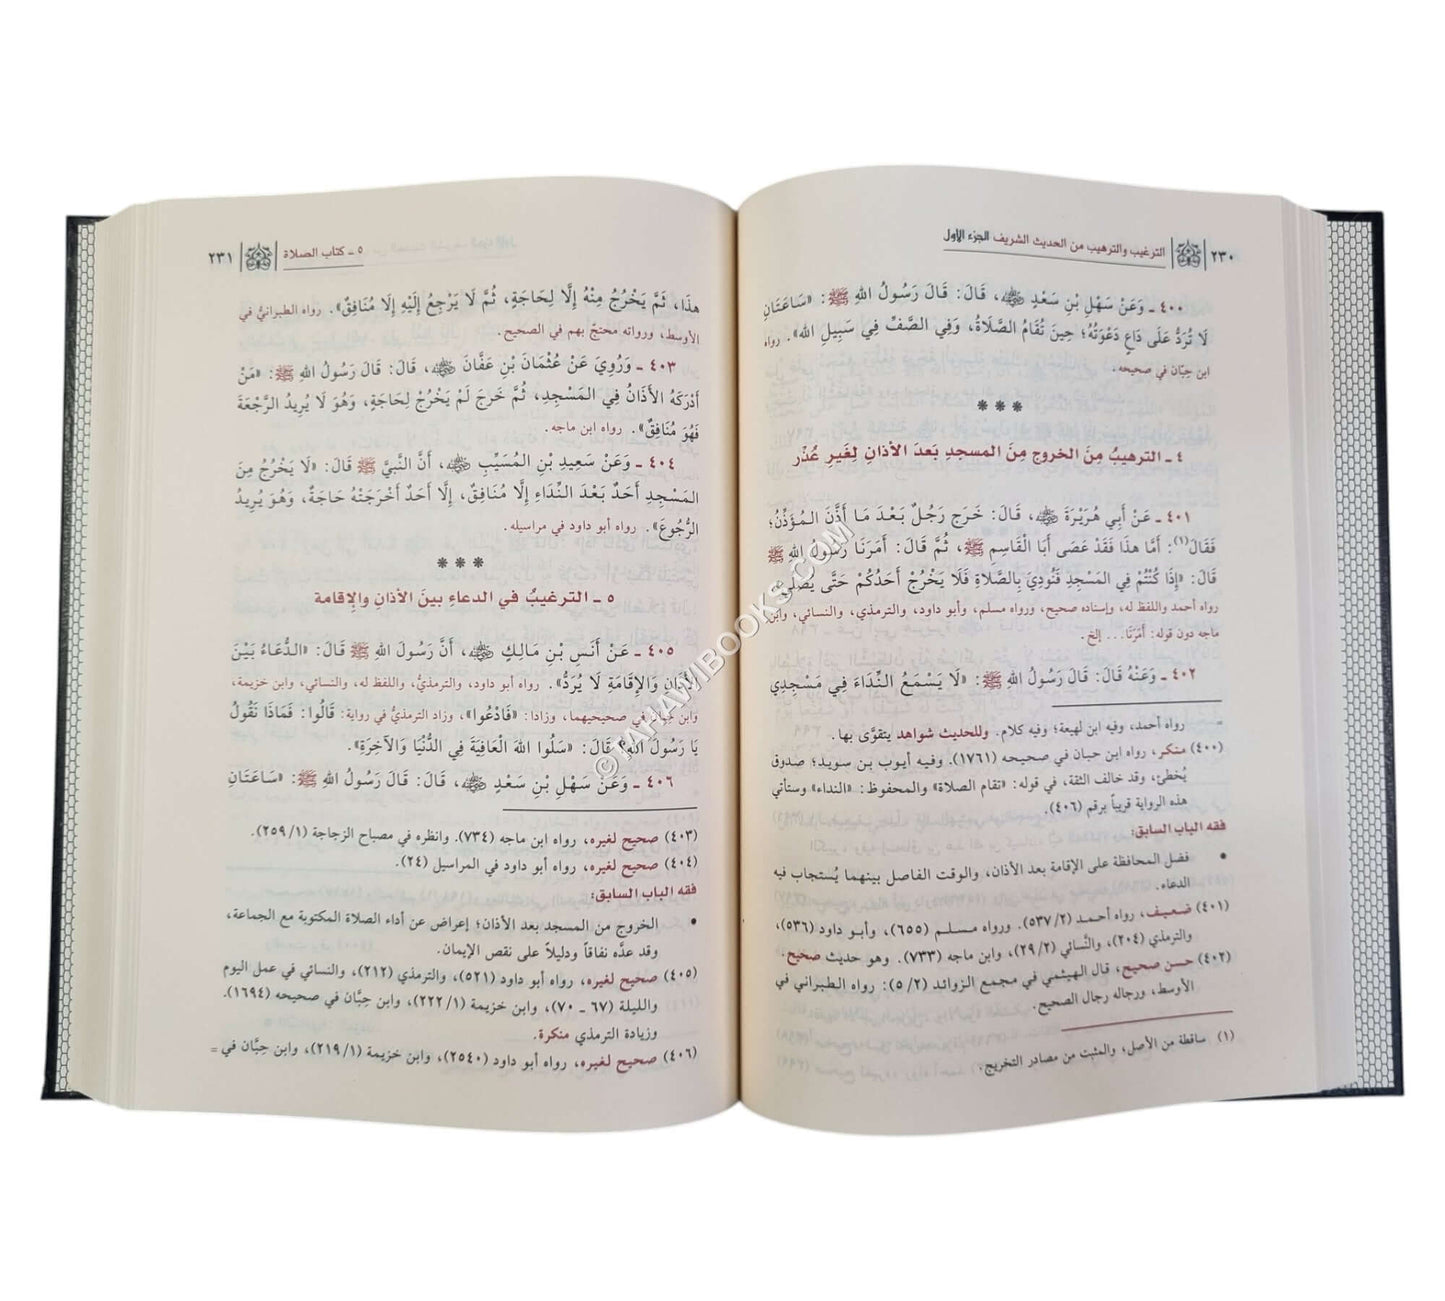 الترغيب والترهيب من الحديث الشريف الجزء الأول
٢٣٠
٤٠٠ ـ وَعَنْ سَهْلِ بْنِ سَعْدٍ رضي الله عنه، قَالَ: قَالَ رَسُولُ اللهِ ﷺ: «سَاعَتَانِ
لَا تُرَدُّ عَلَى دَاعٍ دَعْوَتُهُ؛ حِينَ تُقَامُ الصَّلَاةُ، وَفِي الصَّفِّ فِي سَبِيلِ اللهِ». رواه
ابن حِبَّان في صحيحه.
***
٤ ـ الترهيبُ مِنَ الخروجِ مِنَ المسجدِ بَعدَ الأذانِ لِغَيرِ عُذْر
٤٠١ ـ عَنْ أَبِي هُرَيْرَةَ رضي الله عنه، قَالَ: خَرَجَ رَجُلٌ بَعْدَ مَا أَذَّنَ المُؤَذِّنُ؛
فَقَالَ(١): أَمَّا هذَا فَقَدْ عَصَى أَبَا الْقَاسِمِ ﷺ، ثُمَّ قَالَ: أَمَرَنَا رَسُولُ اللهِ ﷺ
قَالَ: «إِذَا كُنْتُمْ فِي المَسْجِدِ فَنُودِيَ بِالصَّلَاةِ فَلَا يَخْرُجْ أَحَدُكُمْ حَتَّى يُصَلِّيَ».
رواه أحمد واللفظ له، وإسناده صحيح، ورواه مسلم، وأبو داود، والترمذي، والنسائي، وابن
ماجه دون قوله: أَمَرَنَا... إلخ.
٤٠٢ ـ وَعَنْهُ قَالَ: قَالَ رَسُولُ اللهِ ﷺ: «لَا يَسْمَعُ النِّدَاءَ فِي مَسْجِدِي
= رواه أحمد، وفيه ابن لهيعة؛ وفيه كلام. وللحديث شواهد يتقوَّى بها.
(٤٠٠) منكر، رواه ابن حبان في صحيحه (١٧٦١). وفيه أيوب بن سويد؛ صدوق
يُخطئ، وقد خالف الثقة، في قوله: «تقام الصلاة» والمحفوظ: «النداء» وستأتي
هذه الرواية قريباً برقم (٤٠٦).
فقه الباب السابق:
• فضل المحافظة على الإقامة بعد الأذان، والوقت الفاصل بينهما يُستجاب فيه
الدعاء.
(٤٠١) ضعيف، رواه أحمد (٢/ ٥٣٧). ورواه مسلم (٦٥٥)، وأبو داود (٥٣٦)،
والترمذي (٢٠٤)، والنَّسائي (٢/ ٢٩)، وابن ماجه (٧٣٣). وهو حديث صحيح.
(٤٠٢) حسن صحيح، قال الهيثمي في مجمع الزوائد (٢/ ٥): رواه الطبراني في
الأوسط، ورجاله رجال الصحيح.
(١) ساقطة من الأصل، والمثبت من مصادر التخريج.
٥ ـ كتاب الصلاة
٢٣١
هذَا، ثَمَّ يَخْرُجُ مِنْهُ إِلَّا لِحَاجَةٍ، ثُمَّ لَا يَرْجِعُ إِلَيْهِ إِلَّا مُنَافِقٌ». رواه الطبرانيُّ في
الأوسط، ورواته محتجّ بهم في الصحيح.
٤٠٣ ـ وَرُوِيَ عَنْ عُثْمَانَ بْنِ عَفَّانَ رضي الله عنه، قَالَ: قَالَ رَسُولُ اللهِ ﷺ: «مَنْ
أَدْرَكَهُ الأَذَانُ فِي المَسْجِدِ، ثُمَّ خَرَجَ لَمْ يَخْرُجْ لِحَاجَةٍ، وَهُوَ لَا يُرِيدُ الرَّجْعَةَ
فَهُوَ مُنَافِقٌ». رواه ابن ماجه.
٤٠٤ ـ وَعَنْ سَعِيدِ بْنِ المُسَيِّبِ رضي الله عنه، أَنَّ النَّبِيَّ ﷺ قَالَ: «لَا يَخْرُجُ مِنَ
المَسْجِدِ أَحَدٌ بَعْدَ النِّدَاءِ إِلَّا مُنَافِقٌ، إِلَّا أَحَدٌ أَخْرَجَتْهُ حَاجَةٌ، وَهُوَ يُرِيدُ
الرُّجُوعَ». رواه أبو داود في مراسيله.
***
٥ ـ الترغيبُ في الدعاءِ بينَ الأذانِ والإقامة
٤٠٥ ـ عَنْ أَنَسِ بْنِ مَالِكٍ رضي الله عنه، أَنَّ رَسُولَ اللهِ ﷺ قَالَ: «الدُّعَاءُ بَيْنَ
الأَذَانِ وَالإِقَامَةِ لَا يُرَدُّ». رواه أبو داود، والترمذيُّ، واللفظ له، والنسائي، وابن خزيمة،
وابن حِبَّان في صحيحيهما، وزادا: «فَادْعُوا»، وزاد الترمذيُّ في رواية: قَالُوا: فَمَاذَا نَقُولُ
يَا رَسُولَ اللهِ؟ قَالَ: «سَلُوا اللهَ الْعَافِيَةَ فِي الدُّنْيَا وَالآخِرَةِ».
٤٠٦ ـ وَعَنْ سَهْلِ بْنِ سَعْدٍ رضي الله عنه، قَالَ: قَالَ رَسُولُ اللهِ ﷺ: «سَاعَتَانِ
(٤٠٣) صحيح لغيره، رواه ابن ماجه (٧٣٤). وانظره في مصباح الزجاجة (١/ ٢٥٩).
(٤٠٤) صحيح لغيره، رواه أبو داود في المراسيل (٢٤).
فقه الباب السابق:
• الخروج من المسجد بعد الأذان؛ إعراض عن أداء الصلاة المكتوبة مع الجماعة،
وقد عدَّه نفاقاً ودليلاً على نقص الإيمان.
(٤٠٥) صحيح لغيره، رواه أبو داود (٥٢١)، والترمذي (٢١٢)، والنسائي في عمل اليوم
والليلة (٦٧ ـ ٧٠)، وابن خزيمة (١/ ٢٢٢)، وابن حِبَّان في صحيحه (١٦٩٤).
وزيادة الترمذي منكرة.
(٤٠٦) صحيح لغيره، رواه أبو داود (٢٥٤٠)، وابن خزيمة (١/ ٢١٩)، وابن حِبَّان في =
© TAHAWIBOOKS.COM